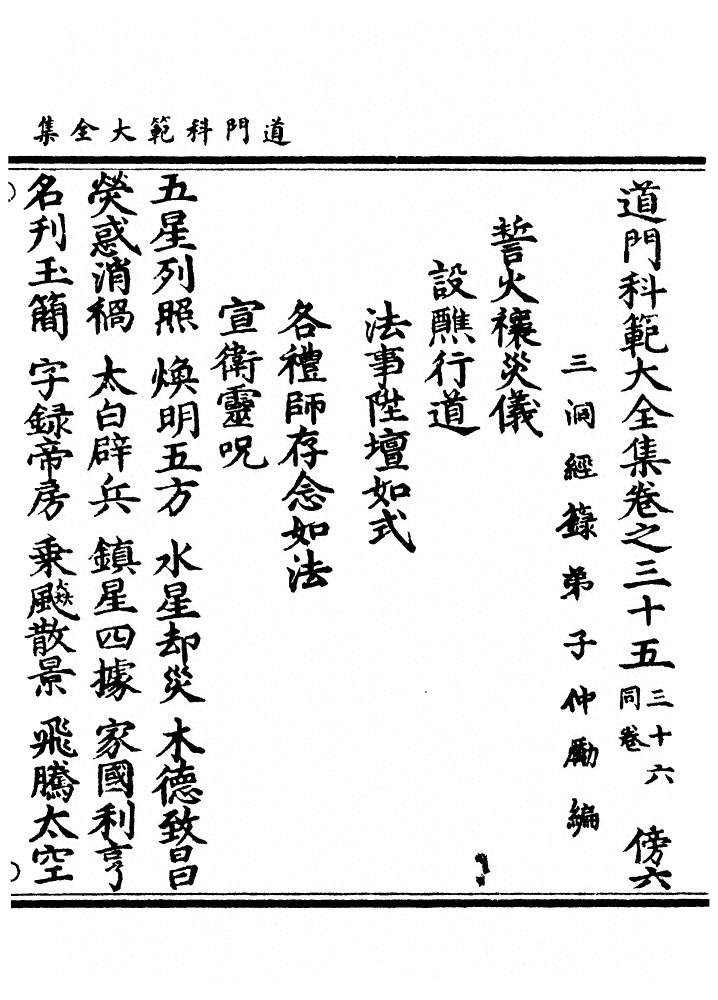 道門科範大全集
道門科範大全集卷之三十五 三十六同卷 傍六
三洞經籙弟子仲勵編
誓火禳災儀
設醮行道
法事陞壇如式
各禮師存念如法
宣衛靈呪
五星列照 煥明五方 水星却災 木德致昌
熒惑消禍 太白辟兵 鎮星四據 家國利亨
名刋玉簡 字録帝房 乗飈散景 飛騰太空